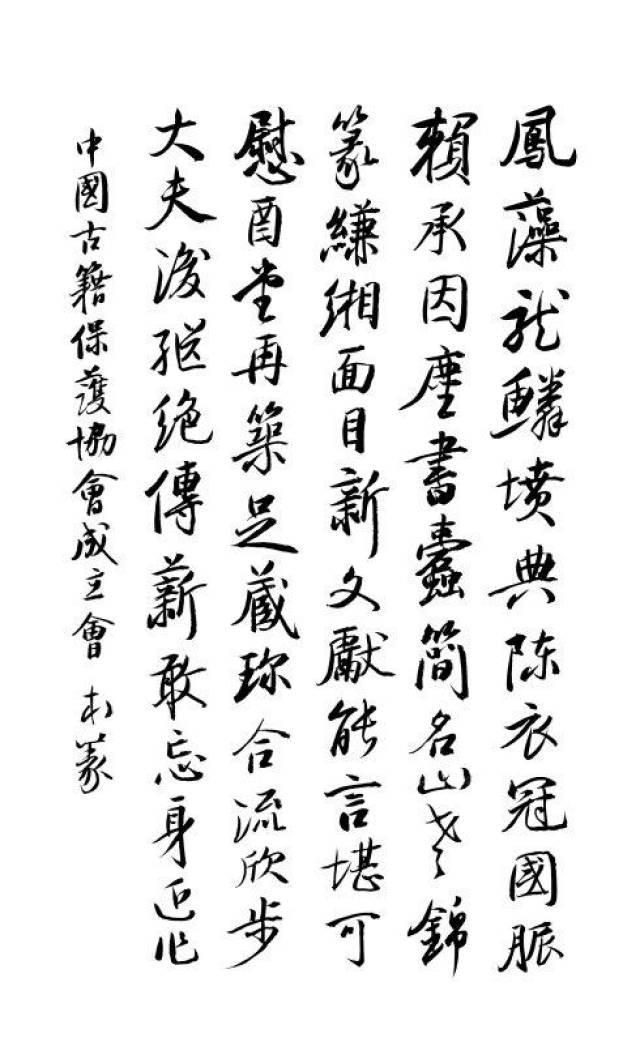 鳳藻龍鱗墳典陈衣冠國脈
賴承因塵書蠹簡名山老錦
篆縑緗面目新文獻能言堪可
慰酉堂再築足蔵珎合流欣步
大夫後孤绝傳薪敢忘身近作
中國古籍保護協會成立會